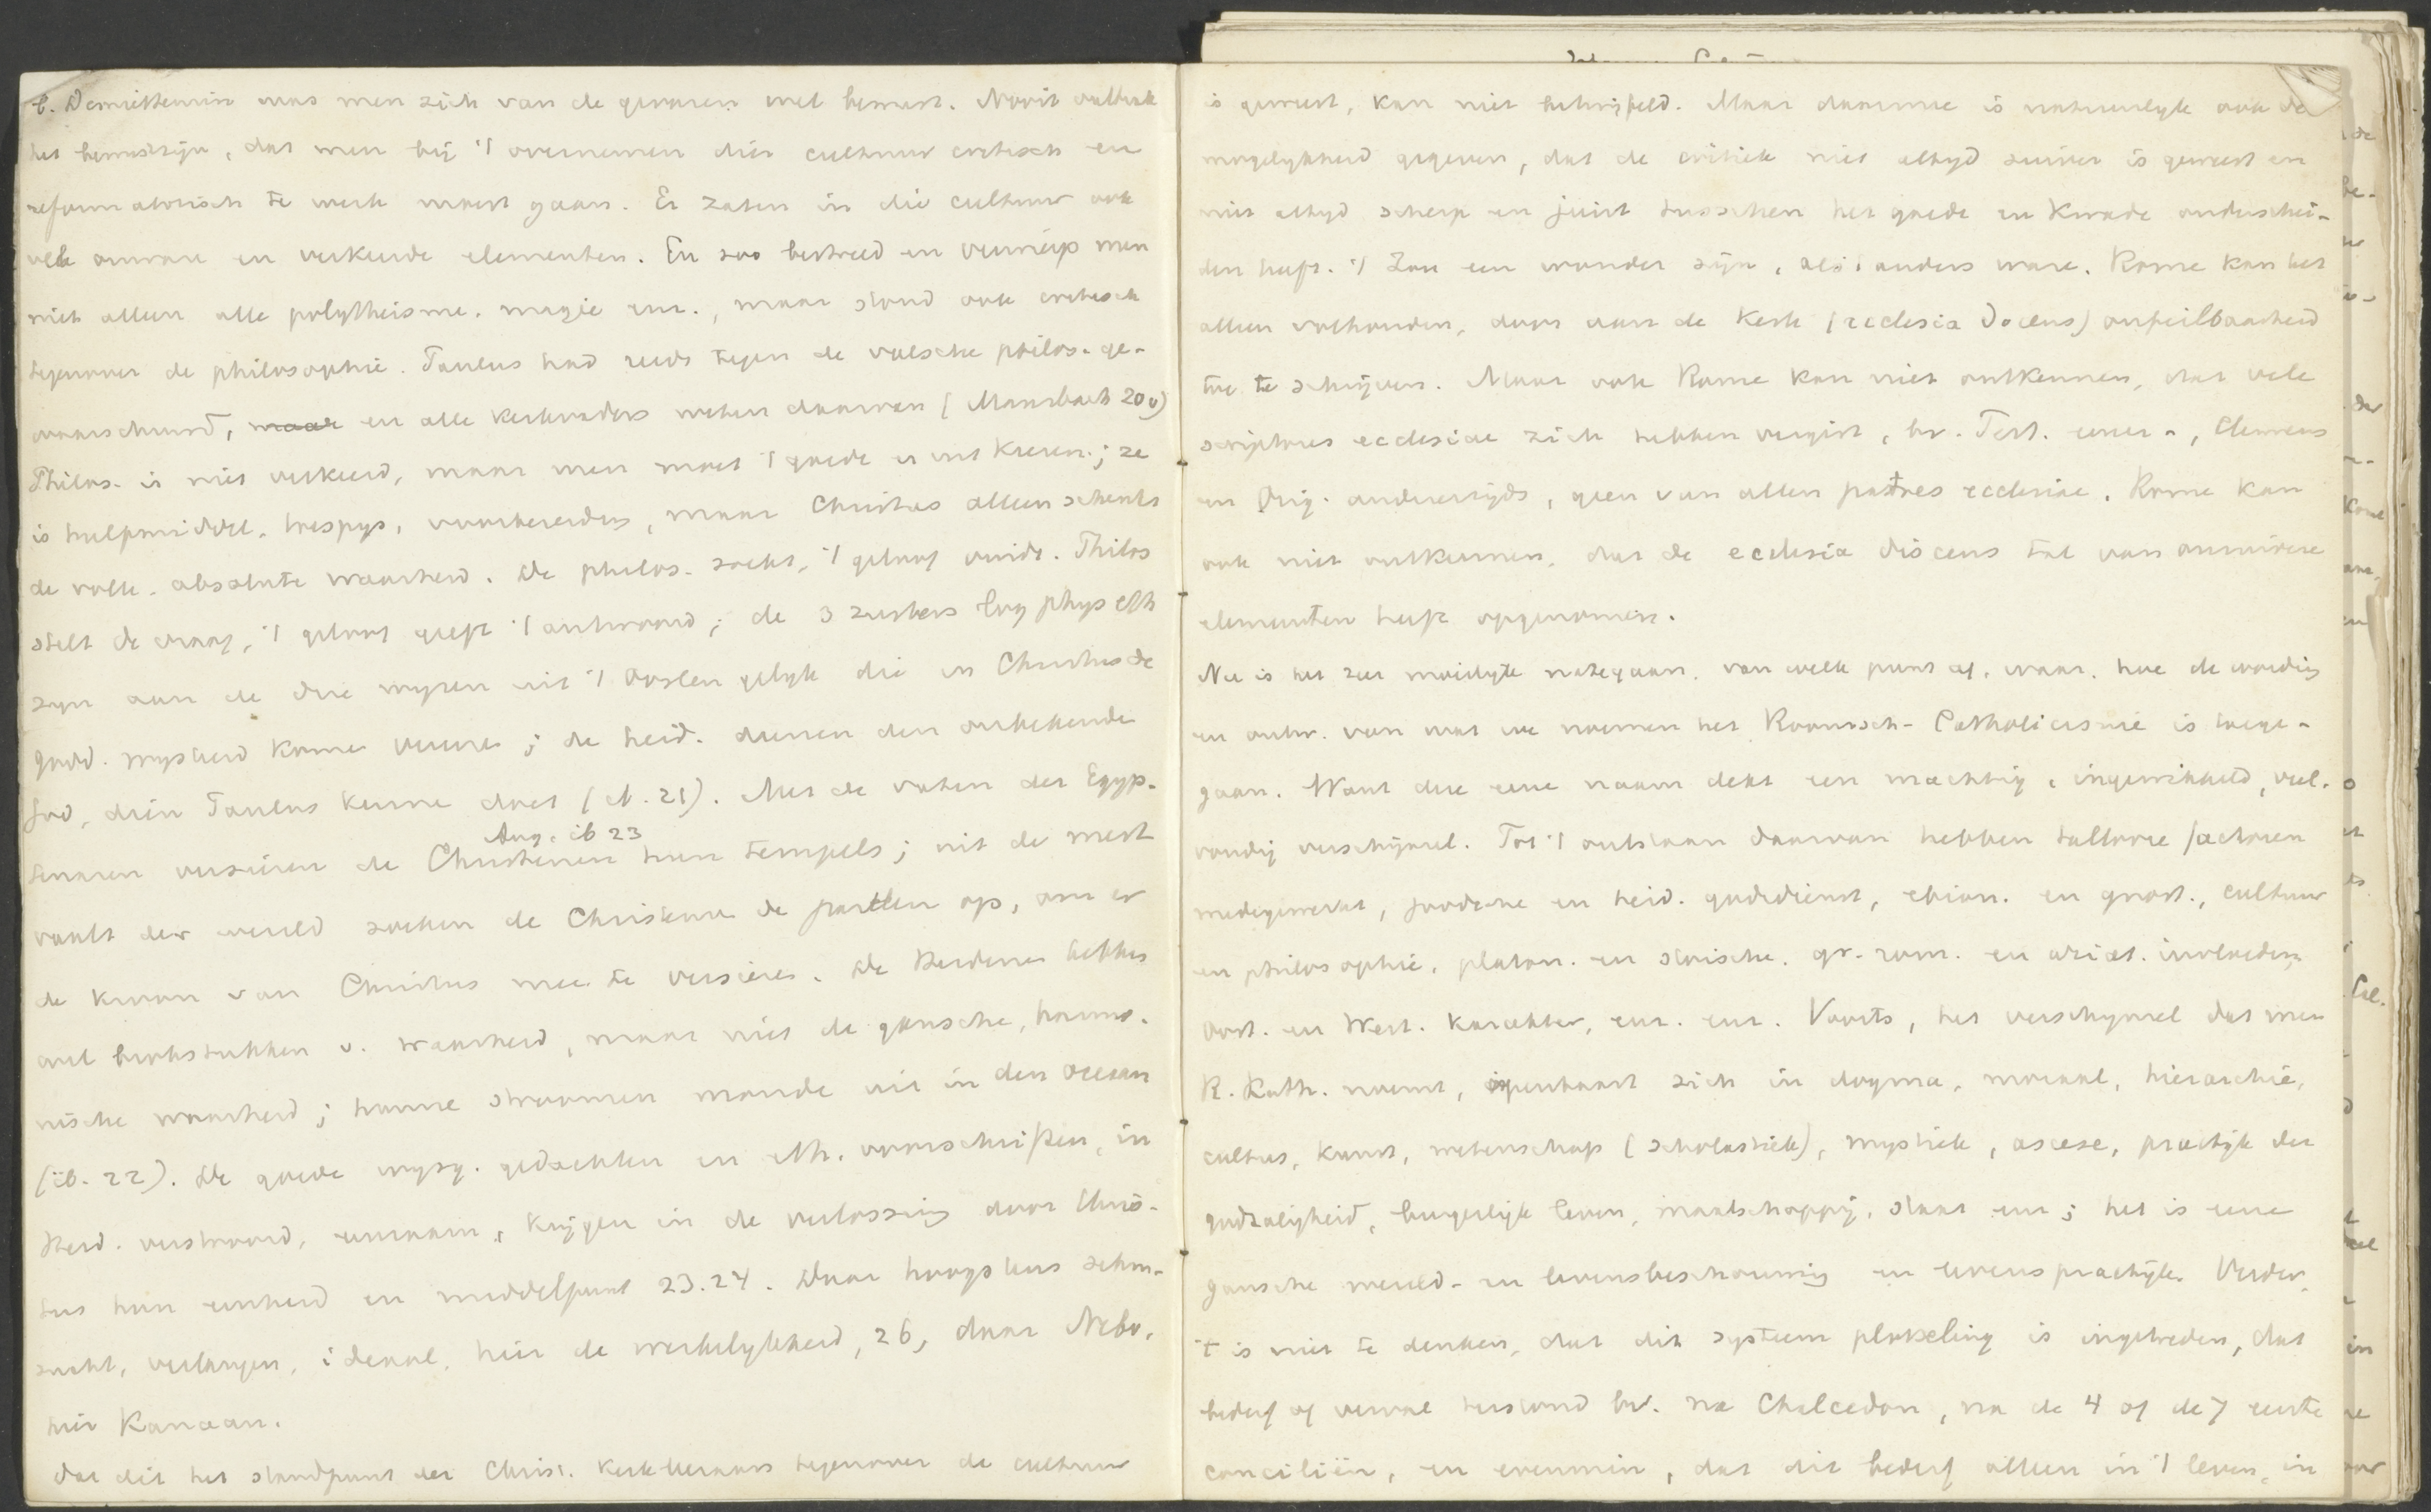 b. Desniettemin was men zich van de gevaren wel bewust. Nooit ontbrak
het bewustzijn, dat men bij 't overnemen dier cultuur critisch en
reformatorisch te werk moest gaan. Er zaten in die cultuur ook
vele onware en verkeerde elementen. En zoo bestreed en verwierp men
niet alleen alle polytheisme, magie enz., maar stond ook critisch
tegenover de philosophie. Paulus had reeds tegen de valsche philos. ge-
waarschuwd, maar en alle kerkvaders weten daarvan (Mausbach 20v)
Philos. is niet verkeerd, maar men moet 't goede er uit kiezen; ze
is hulpmiddel, voorbereiding, maar Christus alleen schenkt
de volle, absolute waarheid. De philos. zoekt, 't geloof vindt. Philos
stelt de vraag, 't geloof geeft 't antwoord; de 3 zusters log phys eth
zyn aan de drie wyzen uit 't Oosten gelijk die in Christus de
godd. wysheid komen vereeren; de heid. dienen den onbekende
God, dien Paulus kennen doet (ib. 21). Met de vaten der Egyp-
Aug. ib 23
tenaren versieren de Christenen hun tempels; uit de mest
vaalt der wereld zoeken de Christenen de paarlen op, om er
de kroon van Christus mee te versieren. De Heidenen hebben
wel brokstukken v. waarheid, maar niet de gansche, harmo-
nische waarheid; hunne stroomen monden uit in den oceaan
(ib. 22). De goede wysg. gedachten en eth. voorschriften, in
Heid. verstrooid, eenzaam, krijgen in de verlossing door Chris-
tus hun eenheid en middelpunt 23.24. Daar hoogstens sehn-
sucht, verlangen, ideaal, hier de werkelykheid, 26, daar Nebo,
hier Kanaan.
Dat dit het standpunt der Christ. kerkleeraars tegenover de cultuur
is geweest, kan niet betwijfeld. Maar daarmee is natuurlyk ook de
mogelykheid gegeven, dat de critiek niet altyd zuiver is geweest en
niet altyd scherp en juist tusschen het goede en kwade onderschei-
den heeft. 't Zou een wonder zijn, als 't anders ware. Rome kan het
alleen volhouden, door aan de Kerk (ecclesia docens) onfeilbaarheid
toe te schrijven. Maar ook Rome kan niet ontkennen, dat vele
scriptores ecclesiae zich hebben vergist, bv. Tert. eener-, Clemens
en Orig. anderzijds, geen van allen patres ecclesiae. Rome kan
ook niet ontkennen, dat de ecclesia discens tal van onzuivere
elementen heeft opgenomen.
Nu is het zeer moeilyk nategaan, van welk punt af, waar, hoe de wording
en ontw. van wat we noemen het Roomsch-Catholicisme is toege-
gaan. Want die eene naam dekt een machtig, ingewikkeld, veel-
voudig verschijnsel. Tot 't ontstaan daarvan hebben tallooze factoren
medegewerkt, joodsche en heid. godsdienst, ebion. en gnost., cultuur
en philosophie, platon. en stoische, gr. rom. en arist. invloeden,
Oost. en West. karakter, enz. enz. Voorts, het verschynsel dat men
R. Kath. noemt, openbaart zich in dogma, moraal, hierarchie,
cultus, kunst, wetenschap (scholastiek), mystiek, ascese, practijk der
godzaligheid, burgerlijk leven, maatschappij, staat enz; het is eene
gansche wereld- en levensbeschouwing en levenspractijk. Verder,
't is niet te denken, dat dit systeem plotseling is ingetreden, dat
bederf of verval terstond bv. na Chalcedon, na de 4 of de 7 eerste
conciliën, en evenmin, dat dit bederf alleen in 't leven, in